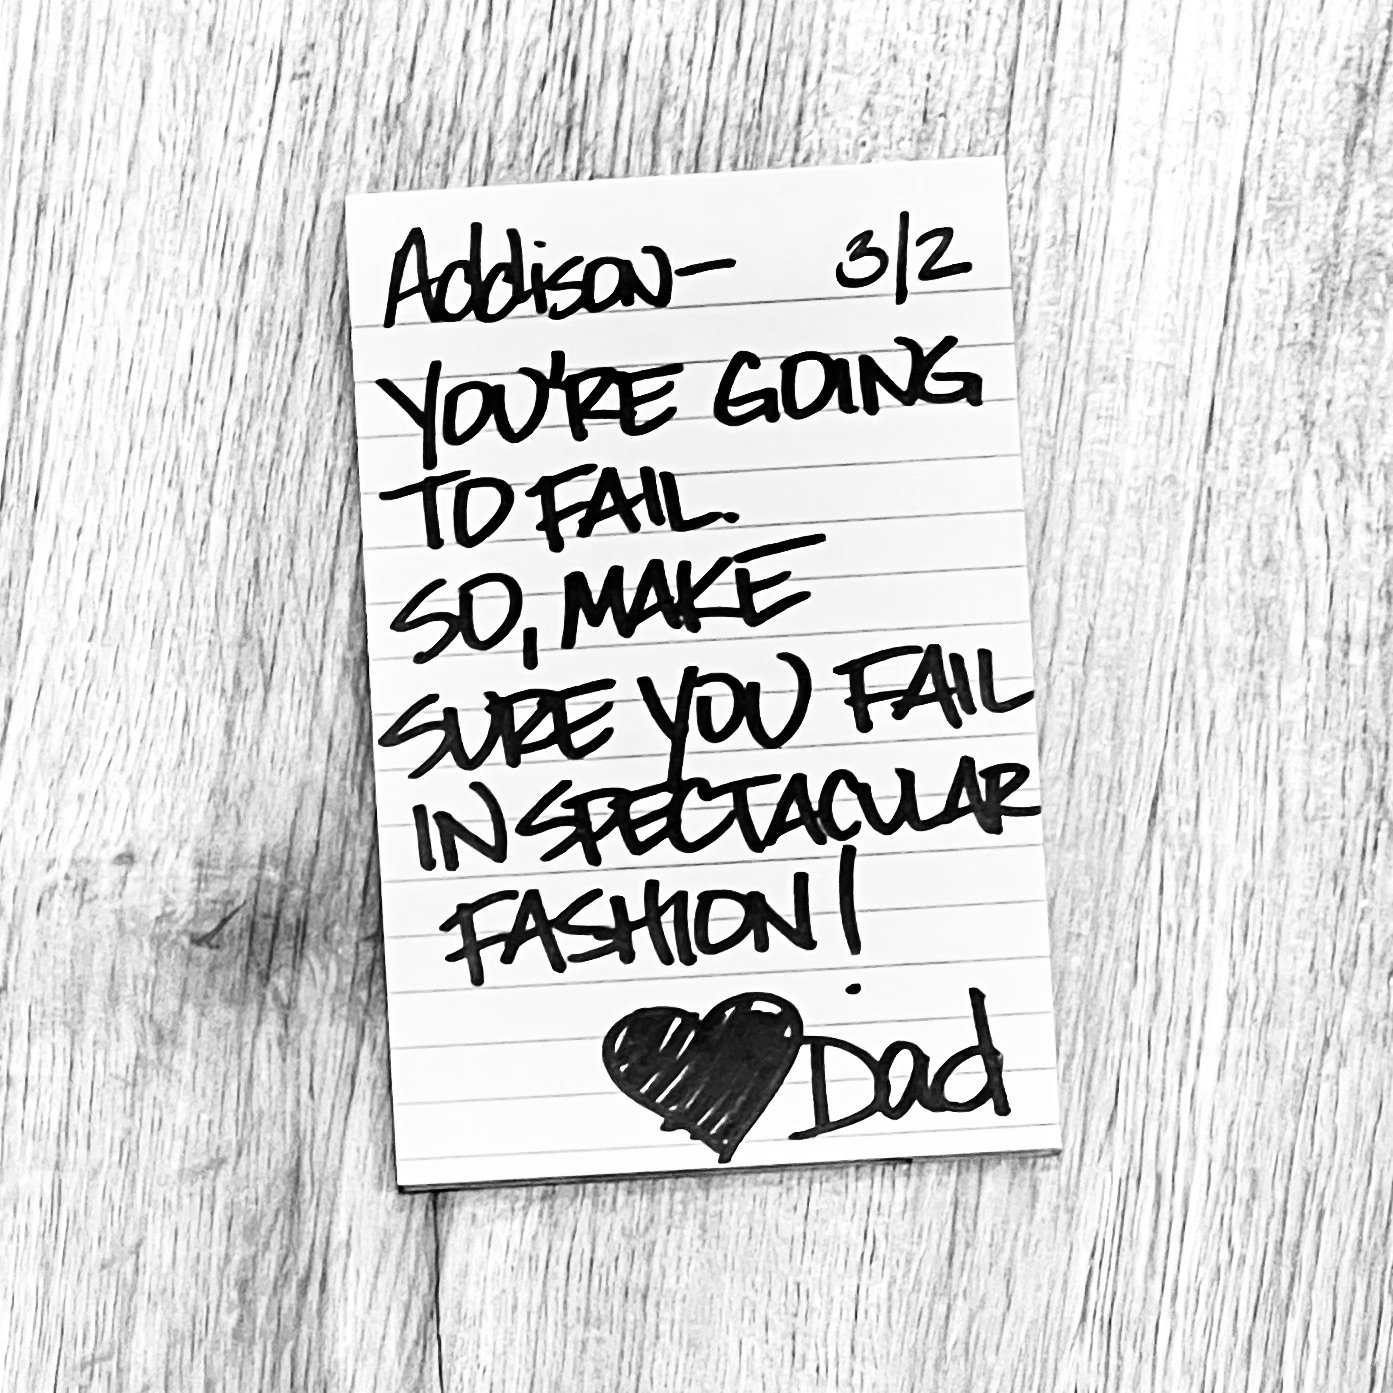 Addison— 3/2
YOU'RE GOING
TO FAIL.
SO, MAKE
SURE YOU FAIL
IN SPECTACULAR
FASHION!
Dad